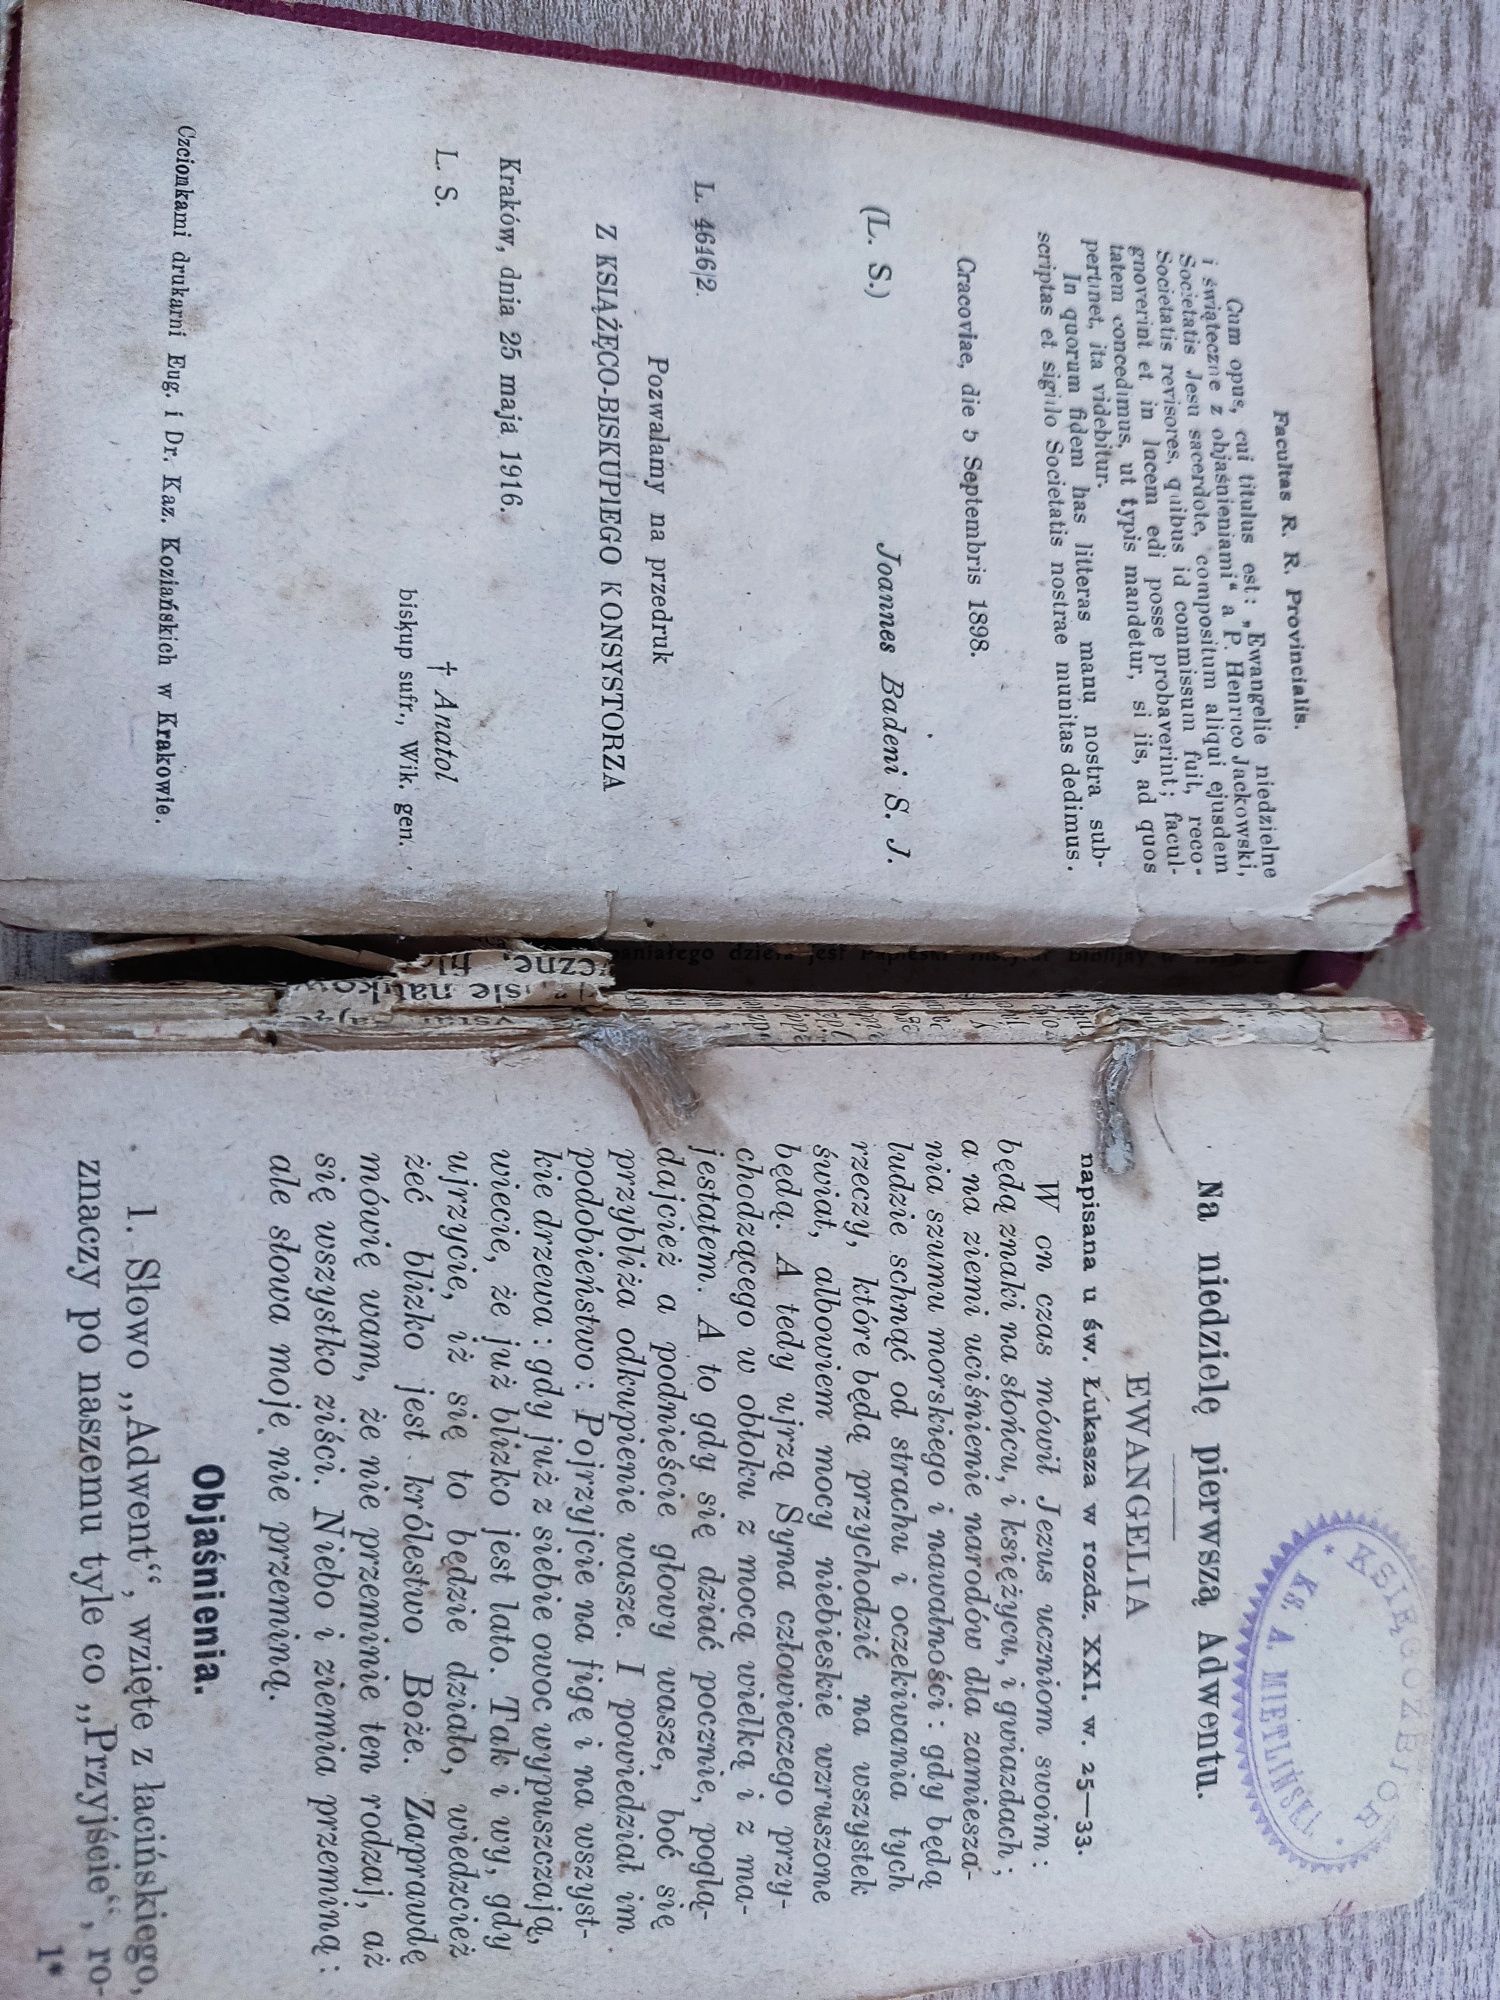 Facultas R. R. Provincialis.
Cum opus, cui titulus est: „Ewangelie niedzielne
i świąteczne z objaśnieniami“ a P. Henrico Jackowski,
Societatis Jesu sacerdote, compositum aliqui ejusdem
Societatis revisores, quibus id commissum fuit, reco-
gnoverint et in lucem edi posse probaverint; facul-
tatem concedimus, ut typis mandetur, si iis, ad quos
pertinet, ita videbitur.
In quorum fidem has litteras manu nostra sub-
scriptas et sigillo Societatis nostrae munitas dedimus.
Cracoviae, die 5 Septembris 1898.
Joannes Badeni S. J.
(L. S.)
L. 4646|2.
Pozwalamy na przedruk
Z KSIĄŻĘCO-BISKUPIEGO KONSYSTORZA
Kraków, dnia 25 maja 1916.
† Anatol
L. S.
biskup sufr., Wik. gen.
Czcionkami drukarni Eug. i Dr. Kaz. Koziańskich w Krakowie.
KSIĘGOZBIOR
Ks. A. MIĘTLIŃSKI
Na niedzielę pierwszą Adwentu.
EWANGELIA
napisana u św. Łukasza w rozdz. XXI. w. 25—33.
W on czas mówił Jezus uczniom swoim:
będą znaki na słońcu, i księżycu, i gwiazdach;
a na ziemi uciśnienie narodów dla zamiesza-
nia szumu morskiego i nawałności: gdy będą
ludzie schnąć od strachu i oczekiwania tych
rzeczy, które będą przychodzić na wszystek
świat, albowiem mocy niebieskie wzruszone
będą. A tedy ujrzą Syna człowieczego przy-
chodzącego w obłoku z mocą wielką i z ma-
jestatem. A to gdy się dziać pocznie, poglą-
dajcież a podnieście głowy wasze, boć się
przybliża odkupienie wasze. I powiedział im
podobieństwo: Pojrzyjcie na figę i na wszyst-
kie drzewa: gdy już z siebie owoc wypuszczają,
wiecie, że już blizko jest lato. Tak i wy, gdy
ujrzycie, iż się to będzie działo, wiedzcież
żeć blizko jest królestwo Boże. Zaprawdę
mówię wam, że nie przeminie ten rodzaj, aż
się wszystko ziści. Niebo i ziemia przeminą:
ale słowa moje nie przeminą.
Objaśnienia.
1. Słowo „Adwent“, wzięte z łacińskiego,
znaczy po naszemu tyle co „Przyjście“, ro-
1*